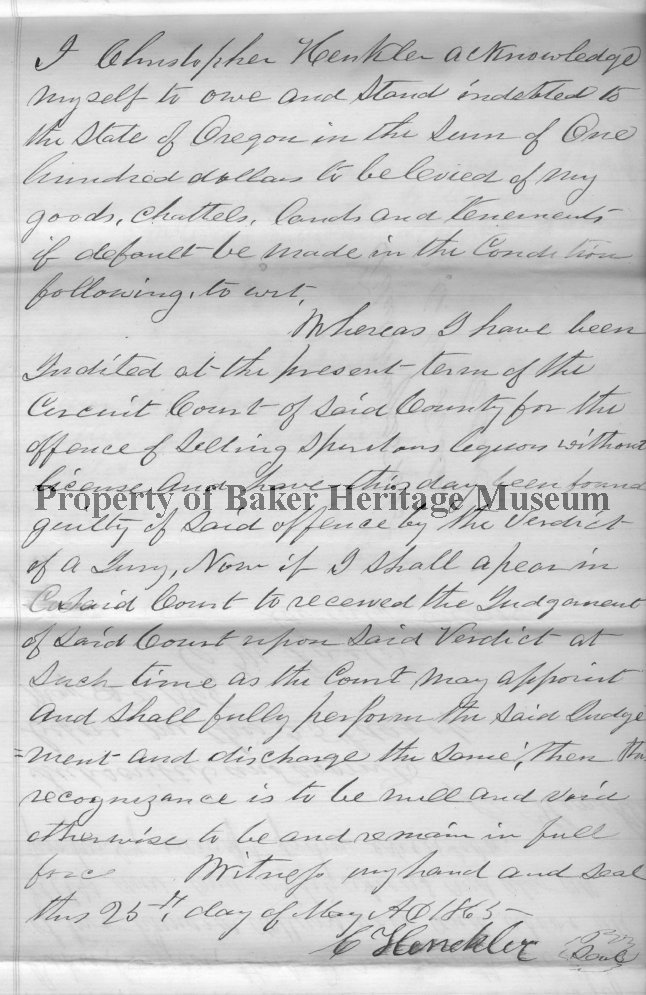 I Christopher Henkler acknowledge
myself to owe and stand indebted to
the State of Oregon in the Sum of One
hundred dollars to be levied of my
goods, chattels, lands and tenements
if default be made in the Condition
following, to wit,
Whereas I have been
Indited at the present term of the
Circuit Court of said County for the
offence of Selling Spiritous liquors without
license, And have this day been found
Property of Baker Heritage Museum
guilty of said offence by the Verdict
of a Jury, Now if I shall apear in
said Court to received the Judgament
of said Court upon said Verdict at
Such time as the Court may appoint
and shall fully perform the said Judge
=ment and discharge the same, then this
recognizance is to be null and void
otherwise to be and remain in full
force Witness my hand and seal
this 25th day of May AD 1865
C Henckler Seal